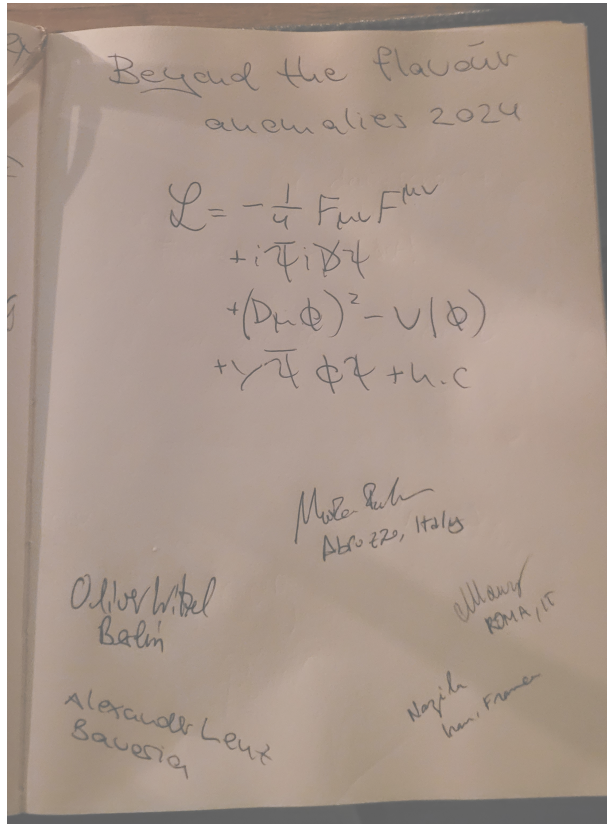 Beyond the flavour
anomalies 2024
ℒ = -1/4 FμνF^μν
+ i Ψ̄ i D̸ Ψ
+ (Dμ Φ)² - V(Φ)
+ y Ψ̄ Φ Ψ + h.c
Abruzzo, Italy
Oliver Witzel
Berlin
ROMA, IT
Alexander Lenz
Bavaria
Nazila
Iran, France